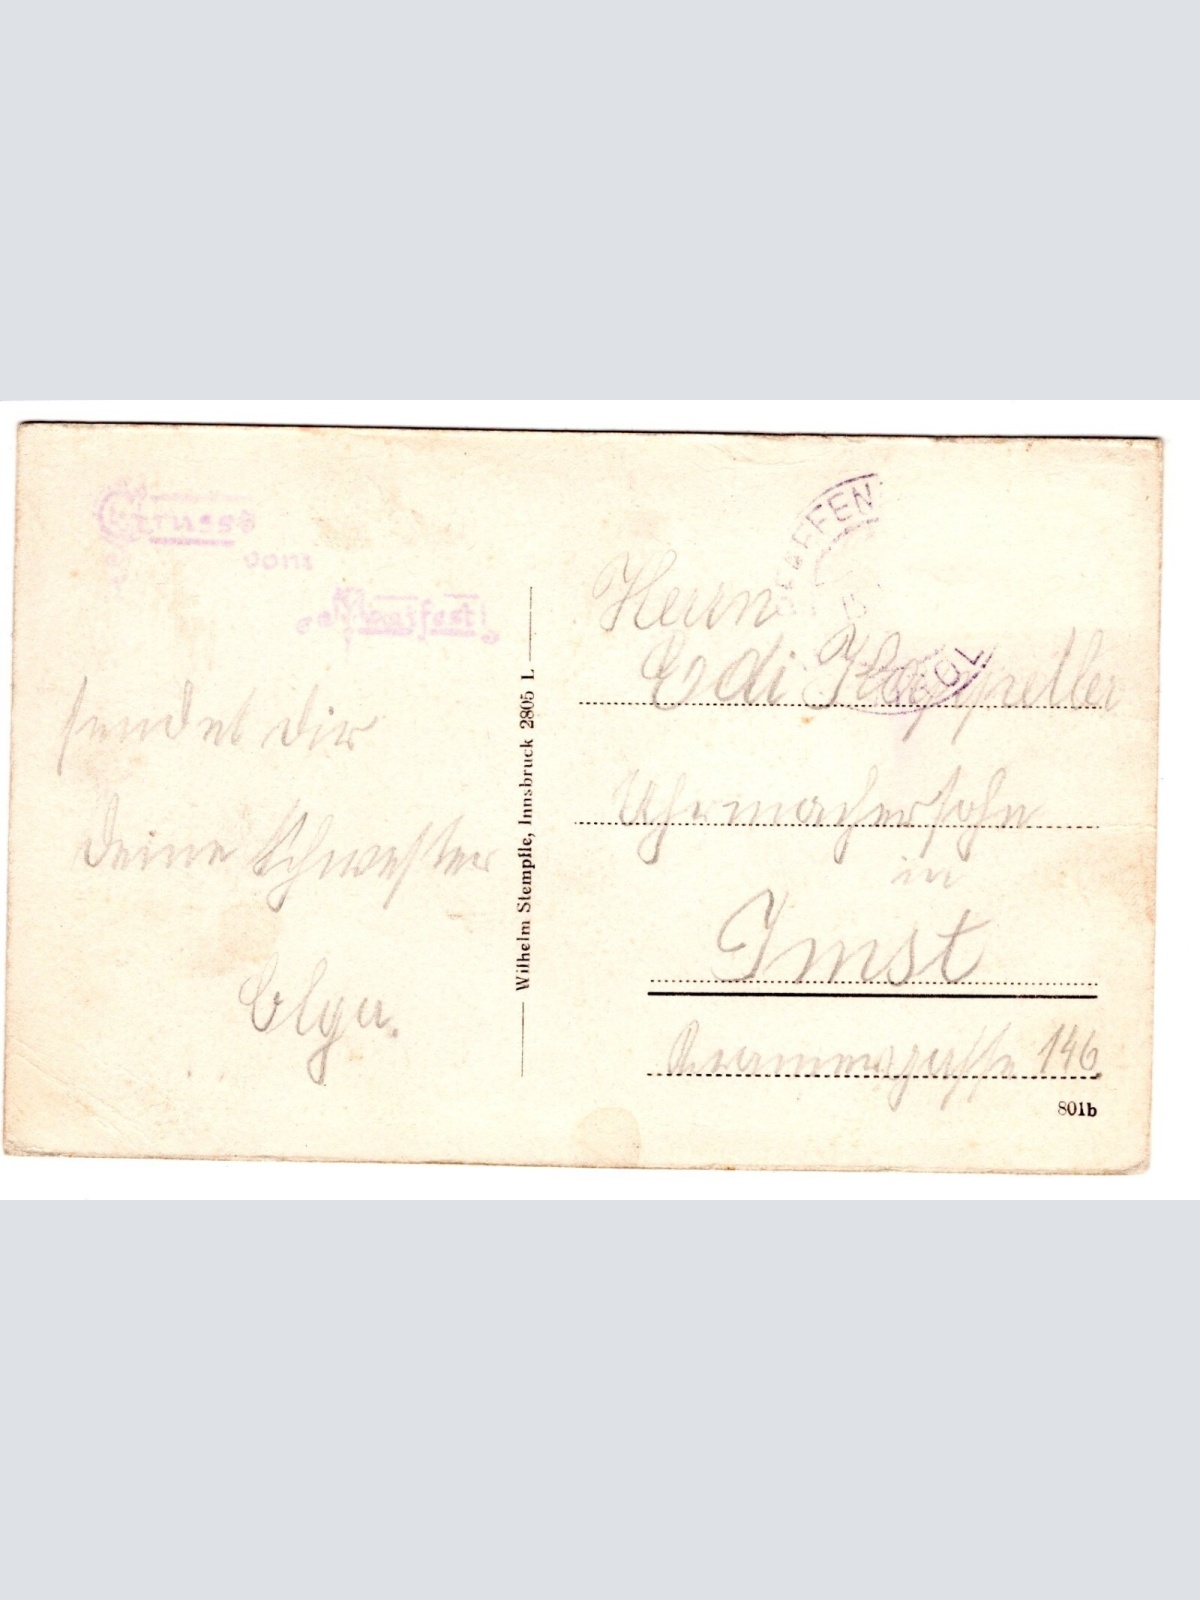 Gruess
vom
Maifest
sendet dir
deine Schwester
Olga.
Wilhelm Stempfle, Innsbruck 2805 L
Herrn
Edi Kappeller
Uhrmachersohn
in
Imst
Kramergasse 146
801b